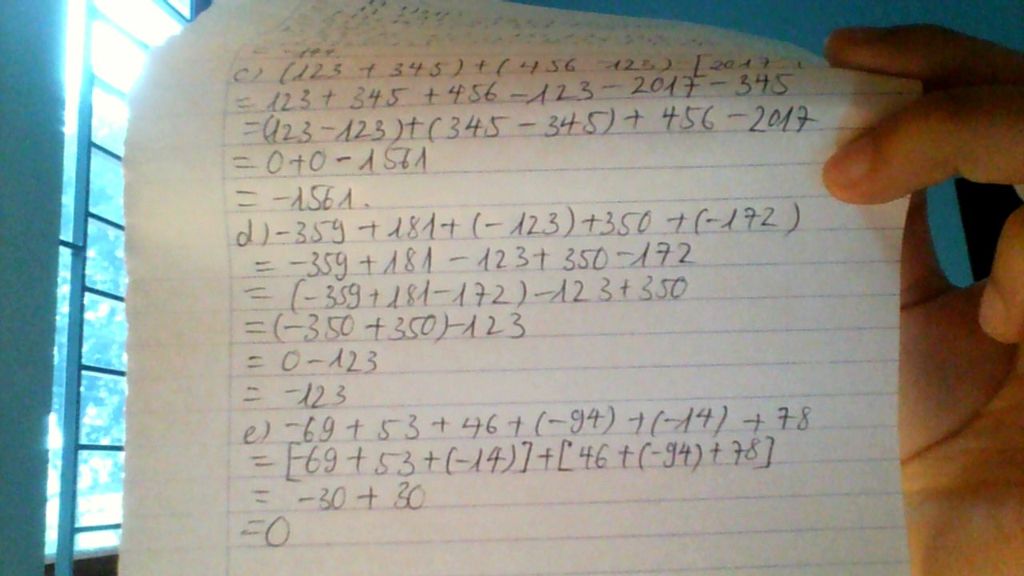 c) (123 + 345) + (456 - 123) - [2017 -
= 123 + 345 + 456 - 123 - 2017 - 345
= (123 - 123) + (345 - 345) + 456 - 2017
= 0 + 0 - 1561
= -1561.
d) -359 + 181 + (-123) + 350 + (-172)
= -359 + 181 - 123 + 350 - 172
= (-359 + 181 - 172) - 123 + 350
= (-350 + 350) - 123
= 0 - 123
= -123
e) -69 + 53 + 46 + (-94) + (-14) + 78
= [-69 + 53 + (-14)] + [46 + (-94) + 78]
= -30 + 30
= 0